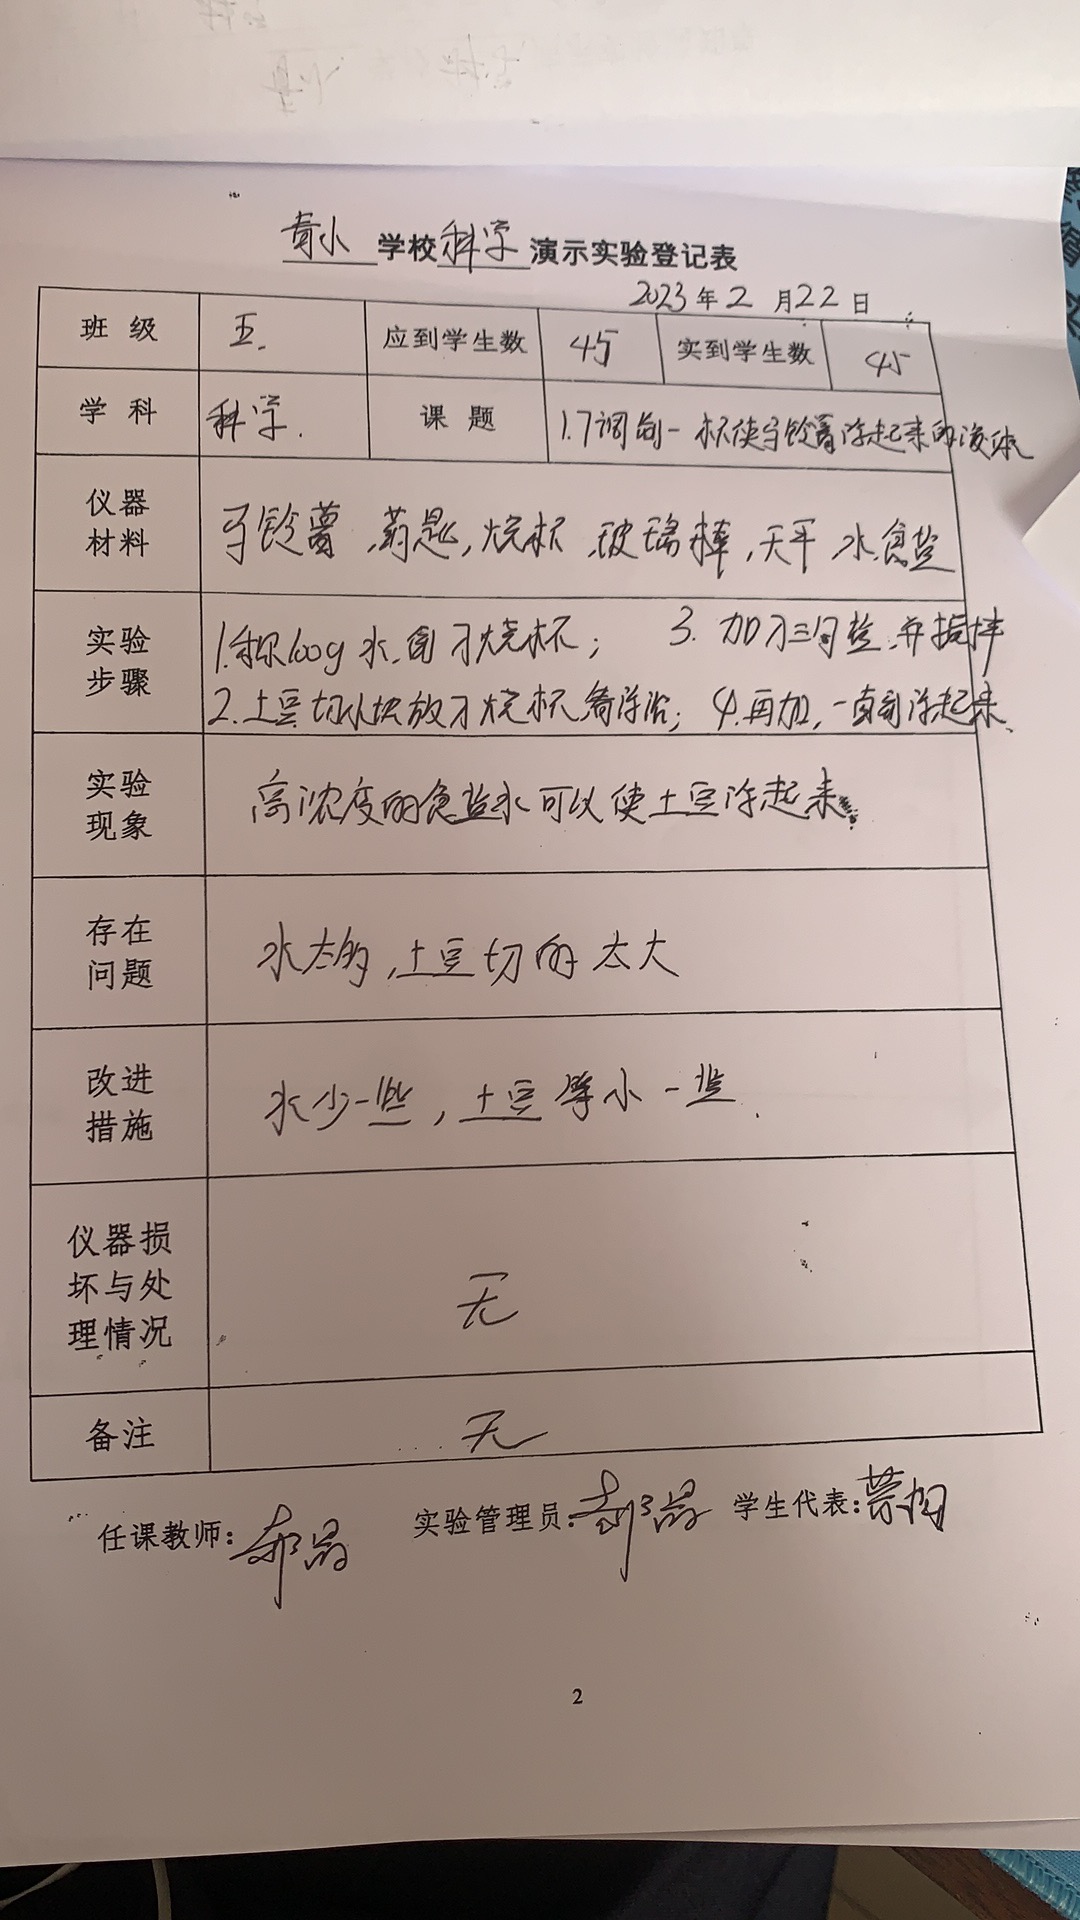 青小 学校 科学 演示实验登记表
2023 年 2 月 22 日
班 级 五. 应到学生数 45 实到学生数 45
学 科 科学. 课 题 1.7调制一杯使马铃薯浮起来的液体
仪器
材料
马铃薯、药匙,烧杯、玻璃棒,天平、水、食盐
实验
步骤
1.称100g水、倒入烧杯; 3. 加入三勺盐,并搅拌
2.土豆切小块放入烧杯,看浮沉; 4.再加,一直到浮起来、
实验
现象
高浓度的食盐水可以使土豆浮起来
存在
问题
水太多,土豆切的太大
改进
措施
水少一些,土豆 小一些.
仪器损
坏与处
理情况
无
备注
无
任课教师: 实验管理员: 学生代表:
2